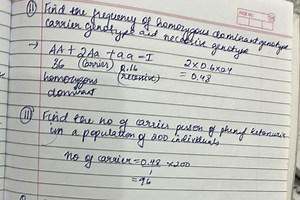 I) Find the frequency of homozygous dominant genotype
carrier genotype and recessive genotype
→ AA + 2Aa + aa = I
36 (carrier) 0.16 2 x 0.6 x 0.4
homozygous (recessive) = 0.48
dominant
II) Find the no of carrier person of phenyl ketonuria
in a population of 200 individuals.
no of carrier = 0.48 x 200
= 96